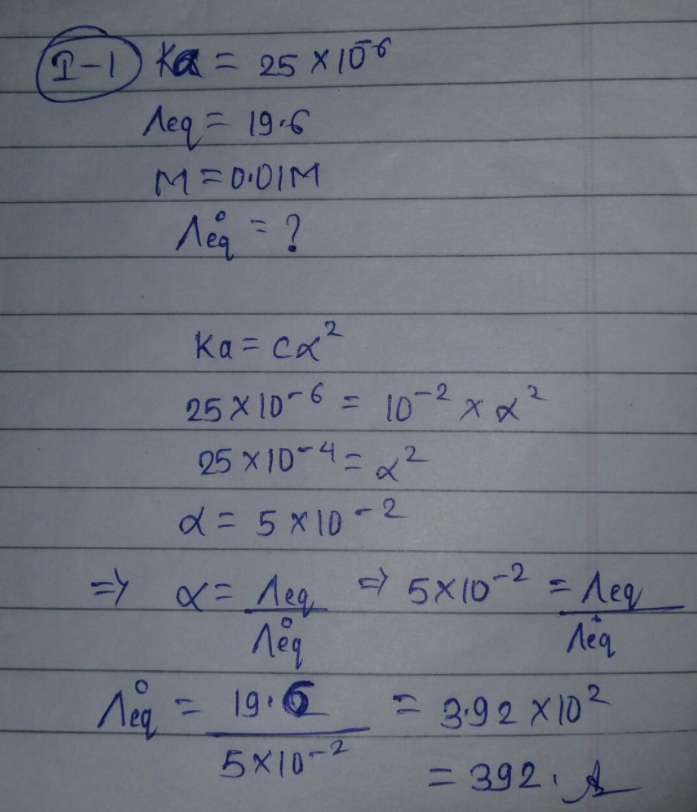 I-1 Ka = 25 × 10⁻⁶
Λeq = 19.6
M = 0.01M
Λ°eq = ?
Ka = Cα²
25 × 10⁻⁶ = 10⁻² × α²
25 × 10⁻⁴ = α²
α = 5 × 10⁻²
⇒ α = Λeq / Λ°eq ⇒ 5 × 10⁻² = Λeq / Λ°eq
Λ°eq = 19.6 / 5 × 10⁻² = 3.92 × 10²
= 392.